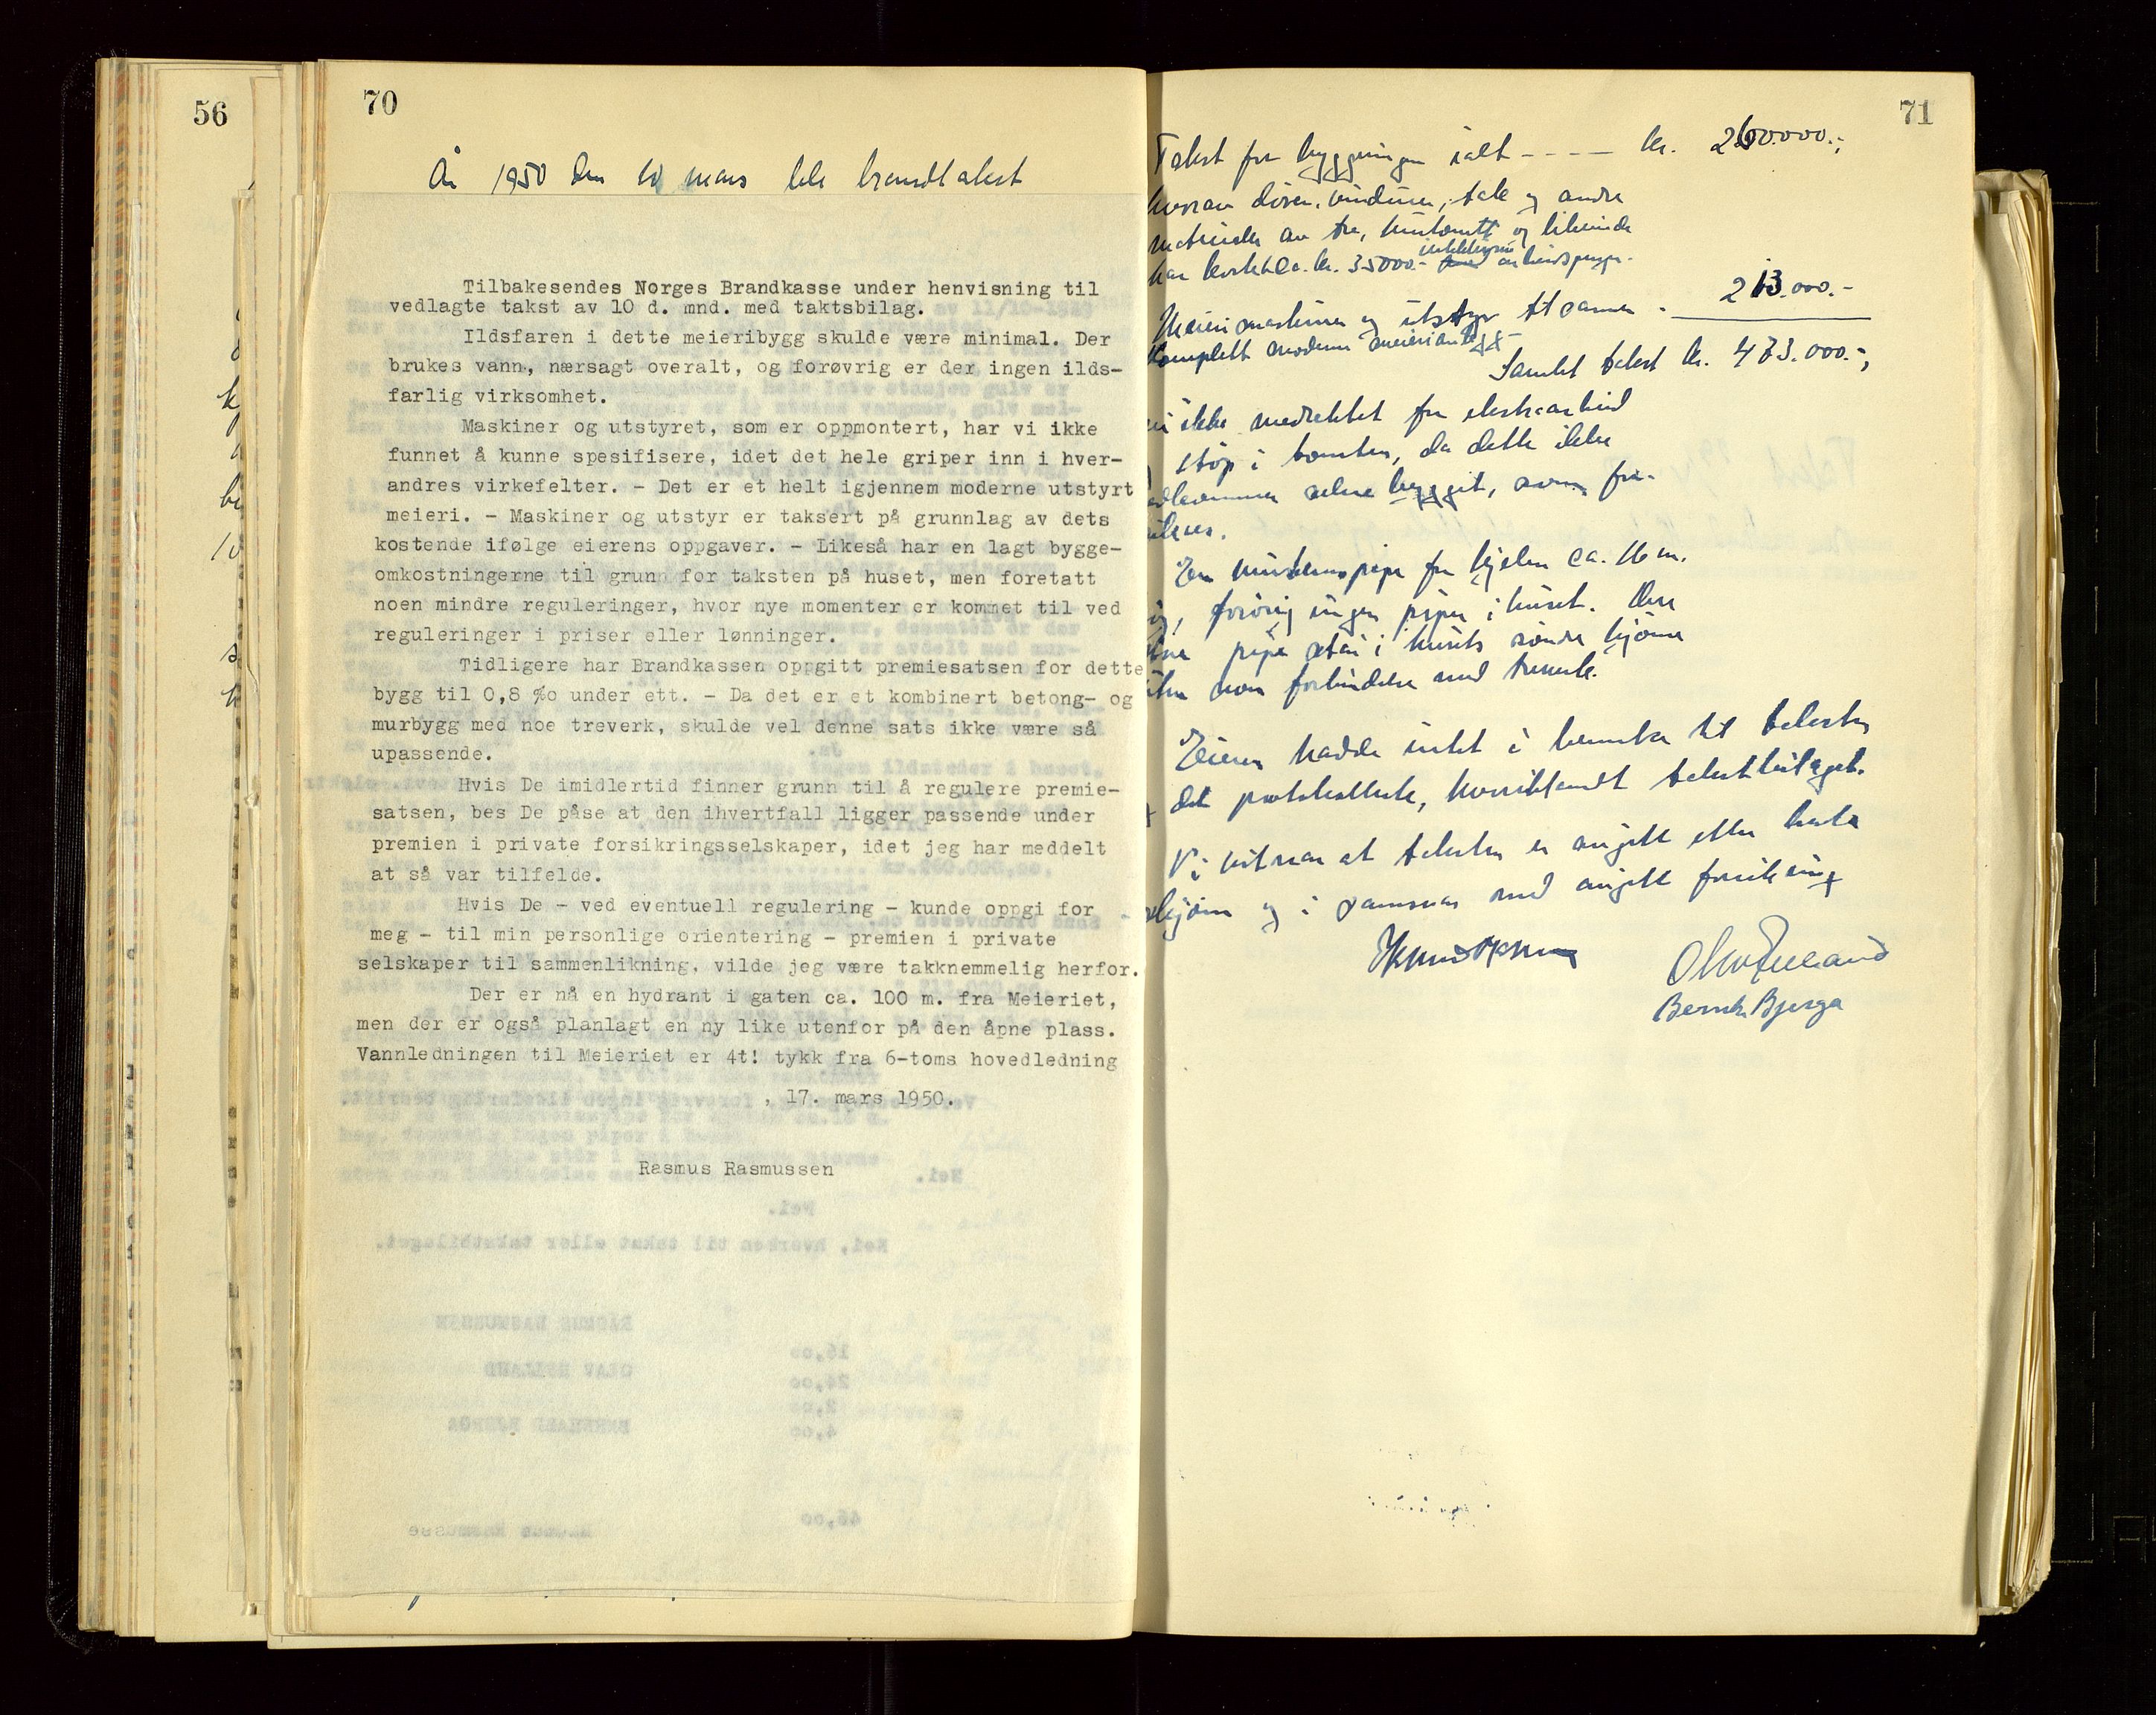 56
70
År 1950 den 10 mars ble brandtakst
Tilbakesendes Norges Brandkasse under henvisning til
vedlagte takst av 10 d. mnd. med taktsbilag.
Ildsfaren i dette meieribygg skulde være minimal. Der
brukes vann, nærsagt overalt, og forøvrig er der ingen ilds-
farlig virksomhet.
Maskiner og utstyret, som er oppmontert, har vi ikke
funnet å kunne spesifisere, idet det hele griper inn i hver-
andres virkefelter. - Det er et helt igjennem moderne utstyrt
meieri. - Maskiner og utstyr er taksert på grunnlag av dets
kostende ifølge eierens oppgaver. - Likeså har en lagt bygge-
omkostningerne til grunn for taksten på huset, men foretatt
noen mindre reguleringer, hvor nye momenter er kommet til ved
reguleringer i priser eller lønninger.
Tidligere har Brandkassen oppgitt premiesatsen for dette
bygg til 0,8 %o under ett. - Da det er et kombinert betong- og
murbygg med noe treverk, skulde vel denne sats ikke være så
upassende.
Hvis De imidlertid finner grunn til å regulere premie-
satsen, bes De påse at den ihvertfall ligger passende under
premien i private forsikringsselskaper, idet jeg har meddelt
at så var tilfelde.
Hvis De - ved eventuell regulering - kunde oppgi for
meg - til min personlige orientering - premien i private
selskaper til sammenlikning, vilde jeg være takknemmelig herfor.
Der er nå en hydrant i gaten ca. 100 m. fra Meieriet,
men der er også planlagt en ny like utenfor på den åpne plass.
Vannledningen til Meieriet er 4t! tykk fra 6-toms hovedledning
, 17. mars 1950.
Rasmus Rasmussen
71
Takst for byggningen ialt ---- kr. 260000.-,
hvorav dører, vinduer, tak og andre
materialer av tre, og liknende
har kostet ca. kr. 35000.- inklusiv arbeidspenger.
Meierimaskiner og utstyr tilsammen - 213.000.-
Komplett moderne meierianlegg -
Samlet takst kr. 473.000.-,
ikke medrektet for ekstraarbeid
støp i tomten, da dette ikke
selve bygget, som
En pipe for kjelen ca. 16 m.
forøvrig ingen piper i huset. Den
pipe står i husets søndre hjørne
uten noen forbindelse med treverk.
Eieren hadde intet å bemerke til taksten
det protokollerte, hverken takst
Vi vitner at taksten er avgitt efter beste
skjønn og i samsvar med avgitt forsikring
Olav Hulland
Bernh. Bjerga